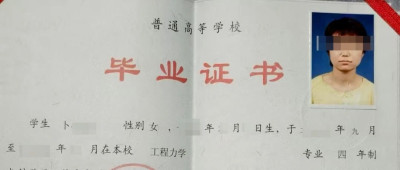 普通高等学校
毕业证书
学生 卜 性别 女， 年 月 日生，于 年 九 月
至 年 月在本校 工程力学 专业 四 年制